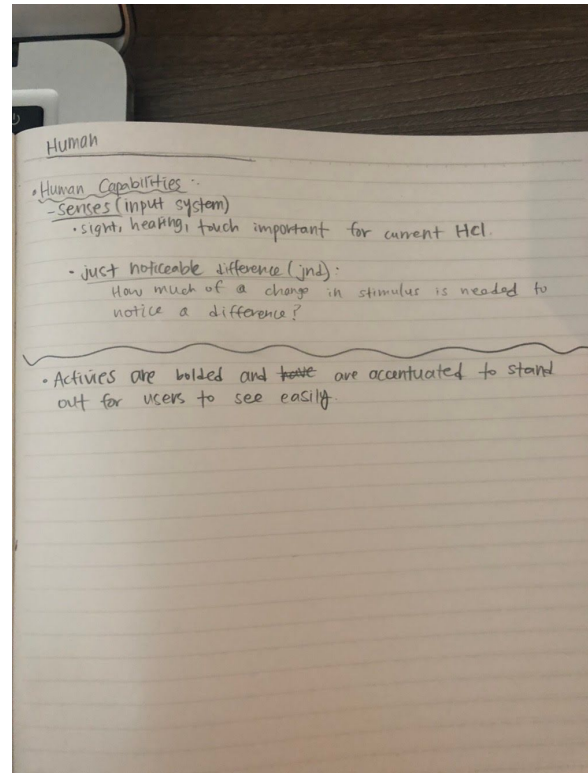 Human
• Human Capabilities :
- senses (input system)
• sight, hearing, touch important for current HCI.
• just noticeable difference (jnd):
How much of a change in stimulus is needed to
notice a difference?
• Activies are bolded and have are accentuated to stand
out for users to see easily.